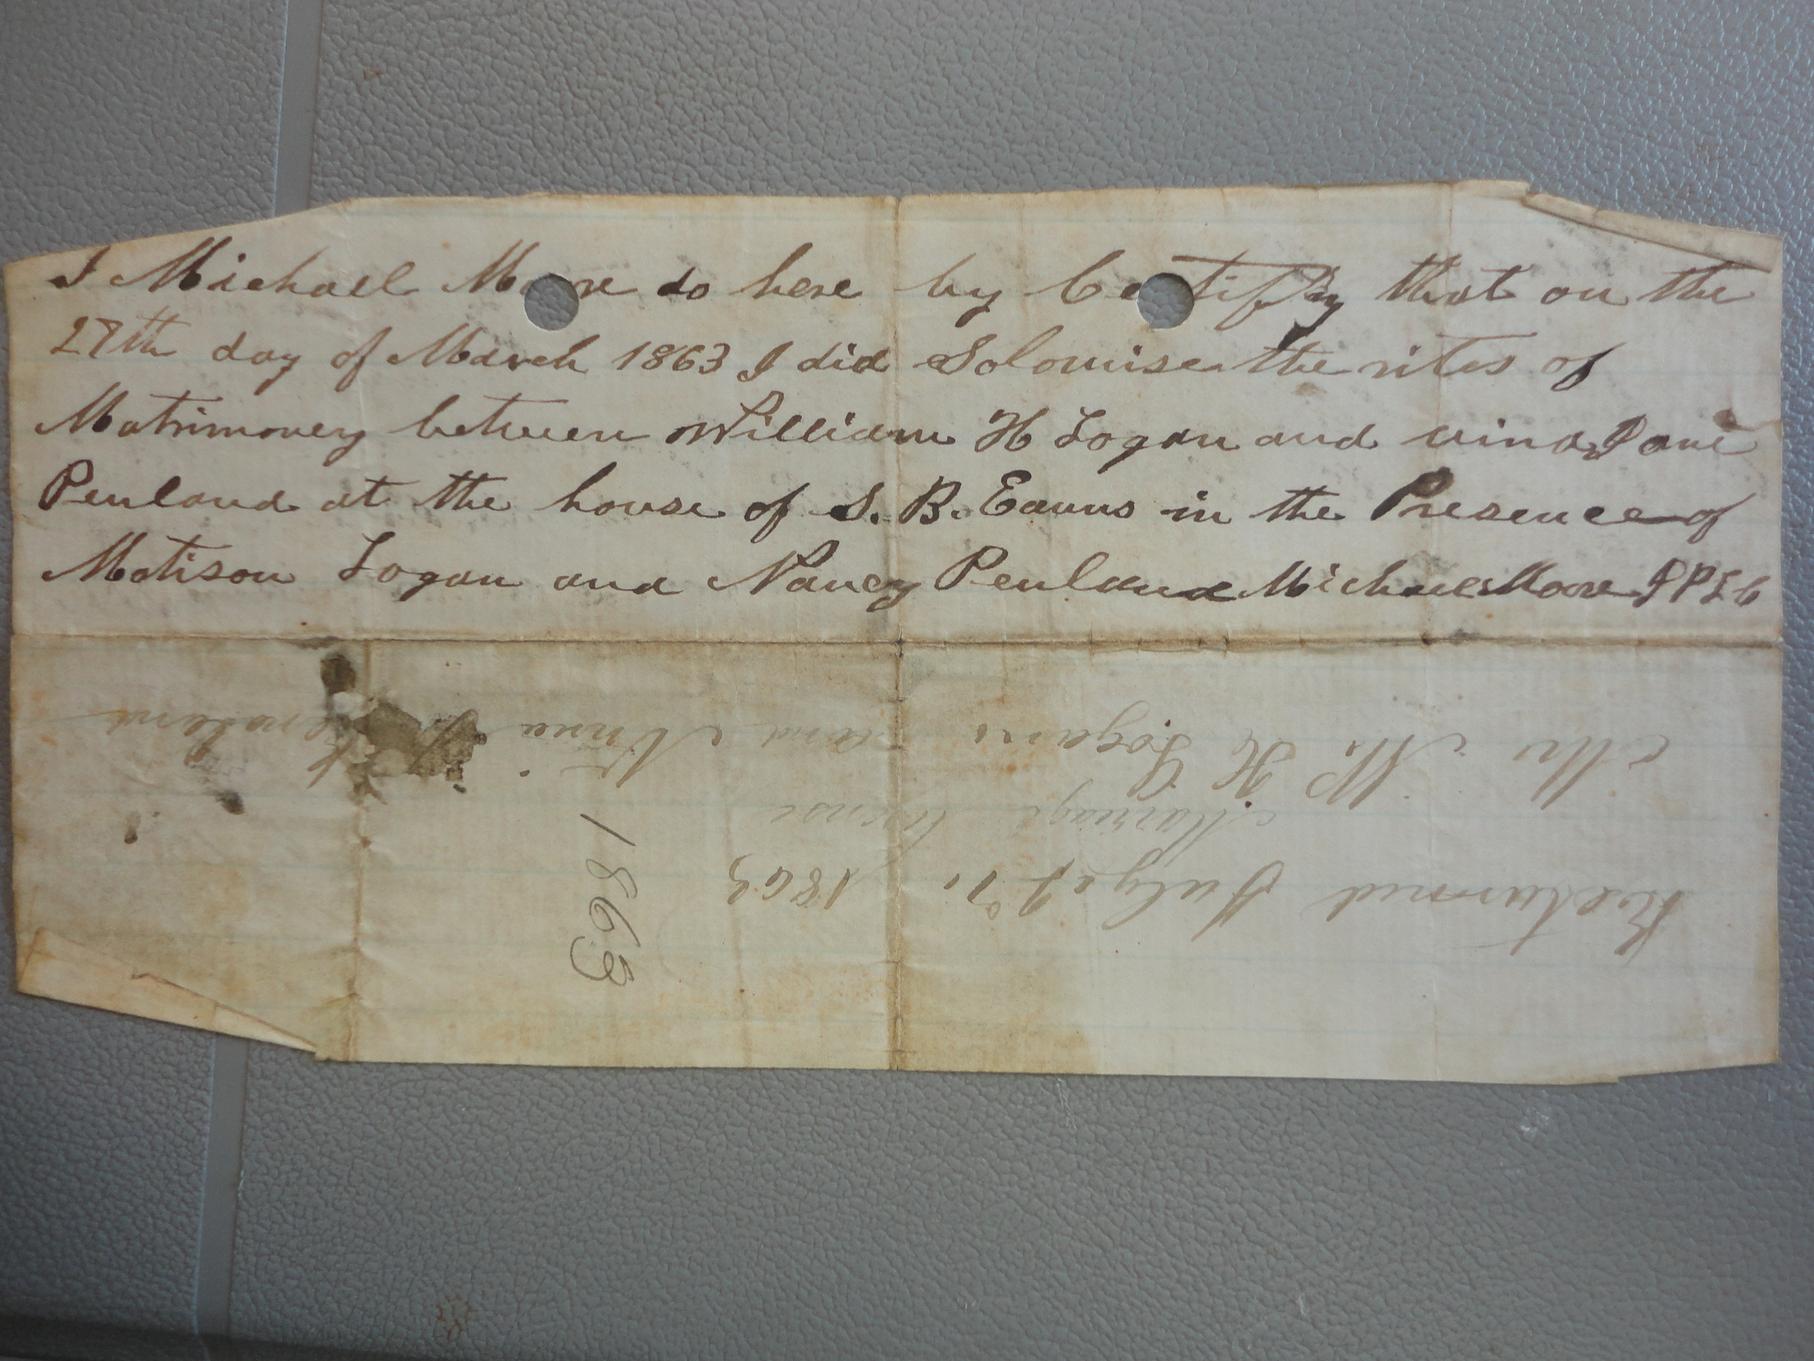 I Michael Moore do here by Certify that on the
27th day of March 1863 I did Solomise the rites of
Matrimoney between William H Logan and vina Jane
Penland at the house of S. B. Eauns in the Presence of
Matison Logan and Nancy Penland Michael Moore J P L C
Mr W. H Logan and Vina J Penland
Marriage
Returned July 1863
1863